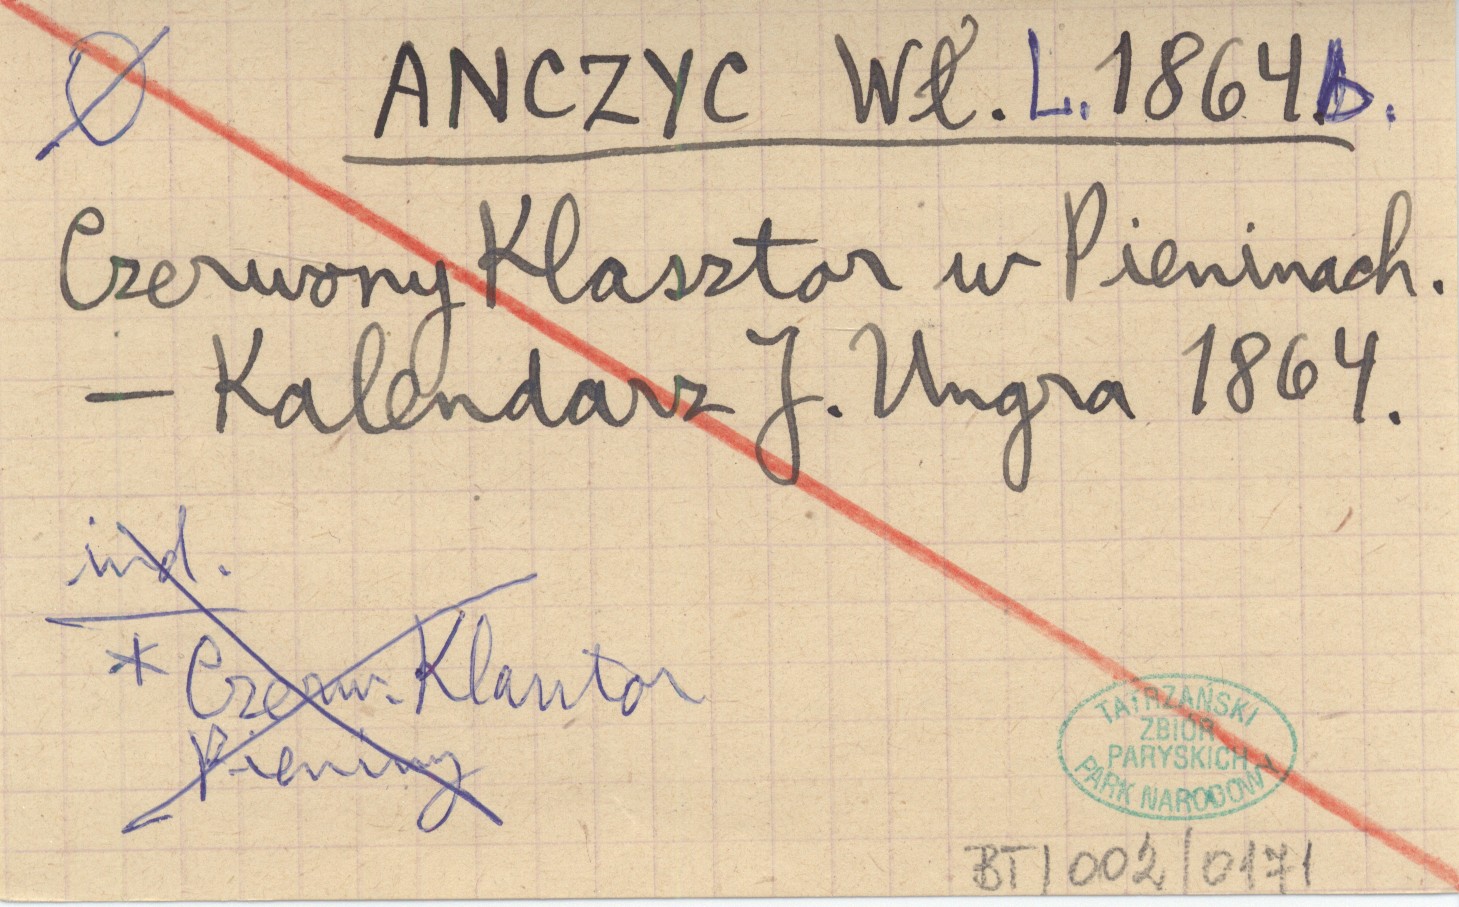 ANCZYC Wł. L. 1864 b.
Czerwony Klasztor w Pieninach.
— Kalendarz J. Ungra 1864.
ind.
* Czerw. Klasztor
Pieniny
TATRZAŃSKI
ZBIÓR
PARYSKICH
PARK NARODOWY
BT/002/0171